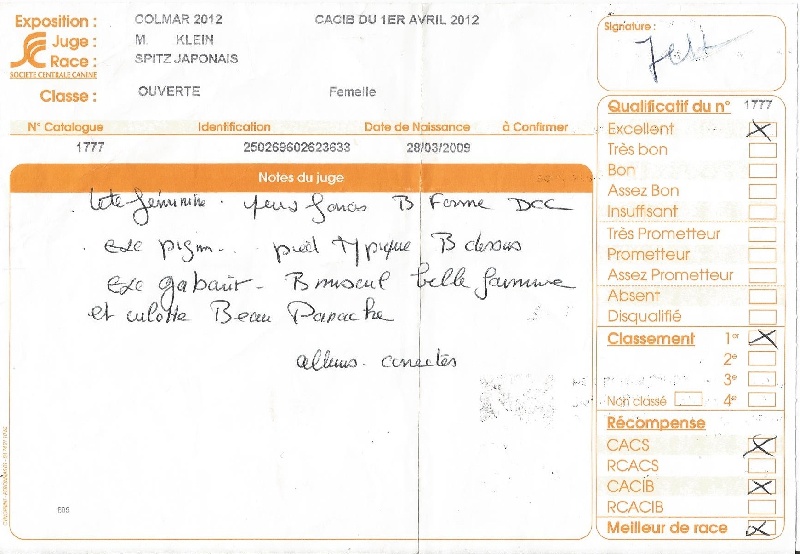 Exposition : COLMAR 2012 CACIB DU 1ER AVRIL 2012
Juge : M. KLEIN
Race : SPITZ JAPONAIS
SOCIETE CENTRALE CANINE
Classe : OUVERTE Femelle
N° Catalogue Identification Date de Naissance à Confirmer
1777 250269602623633 28/03/2009
Notes du juge
tete féminine. yeux foncés B Forme
exc pigm.. pied typique B dessus
exc gabarit - B museau belle
et culotte Beau Panache
allures. correctes
606
Signature :
Qualificatif du n° 1777
Excellent X
Très bon
Bon
Assez Bon
Insuffisant
Très Prometteur
Prometteur
Assez Prometteur
Absent
Disqualifié
Classement 1er X
2e
3e
Non classé 4e
Récompense
CACS X
RCACS
CACIB X
RCACIB
Meilleur de race X